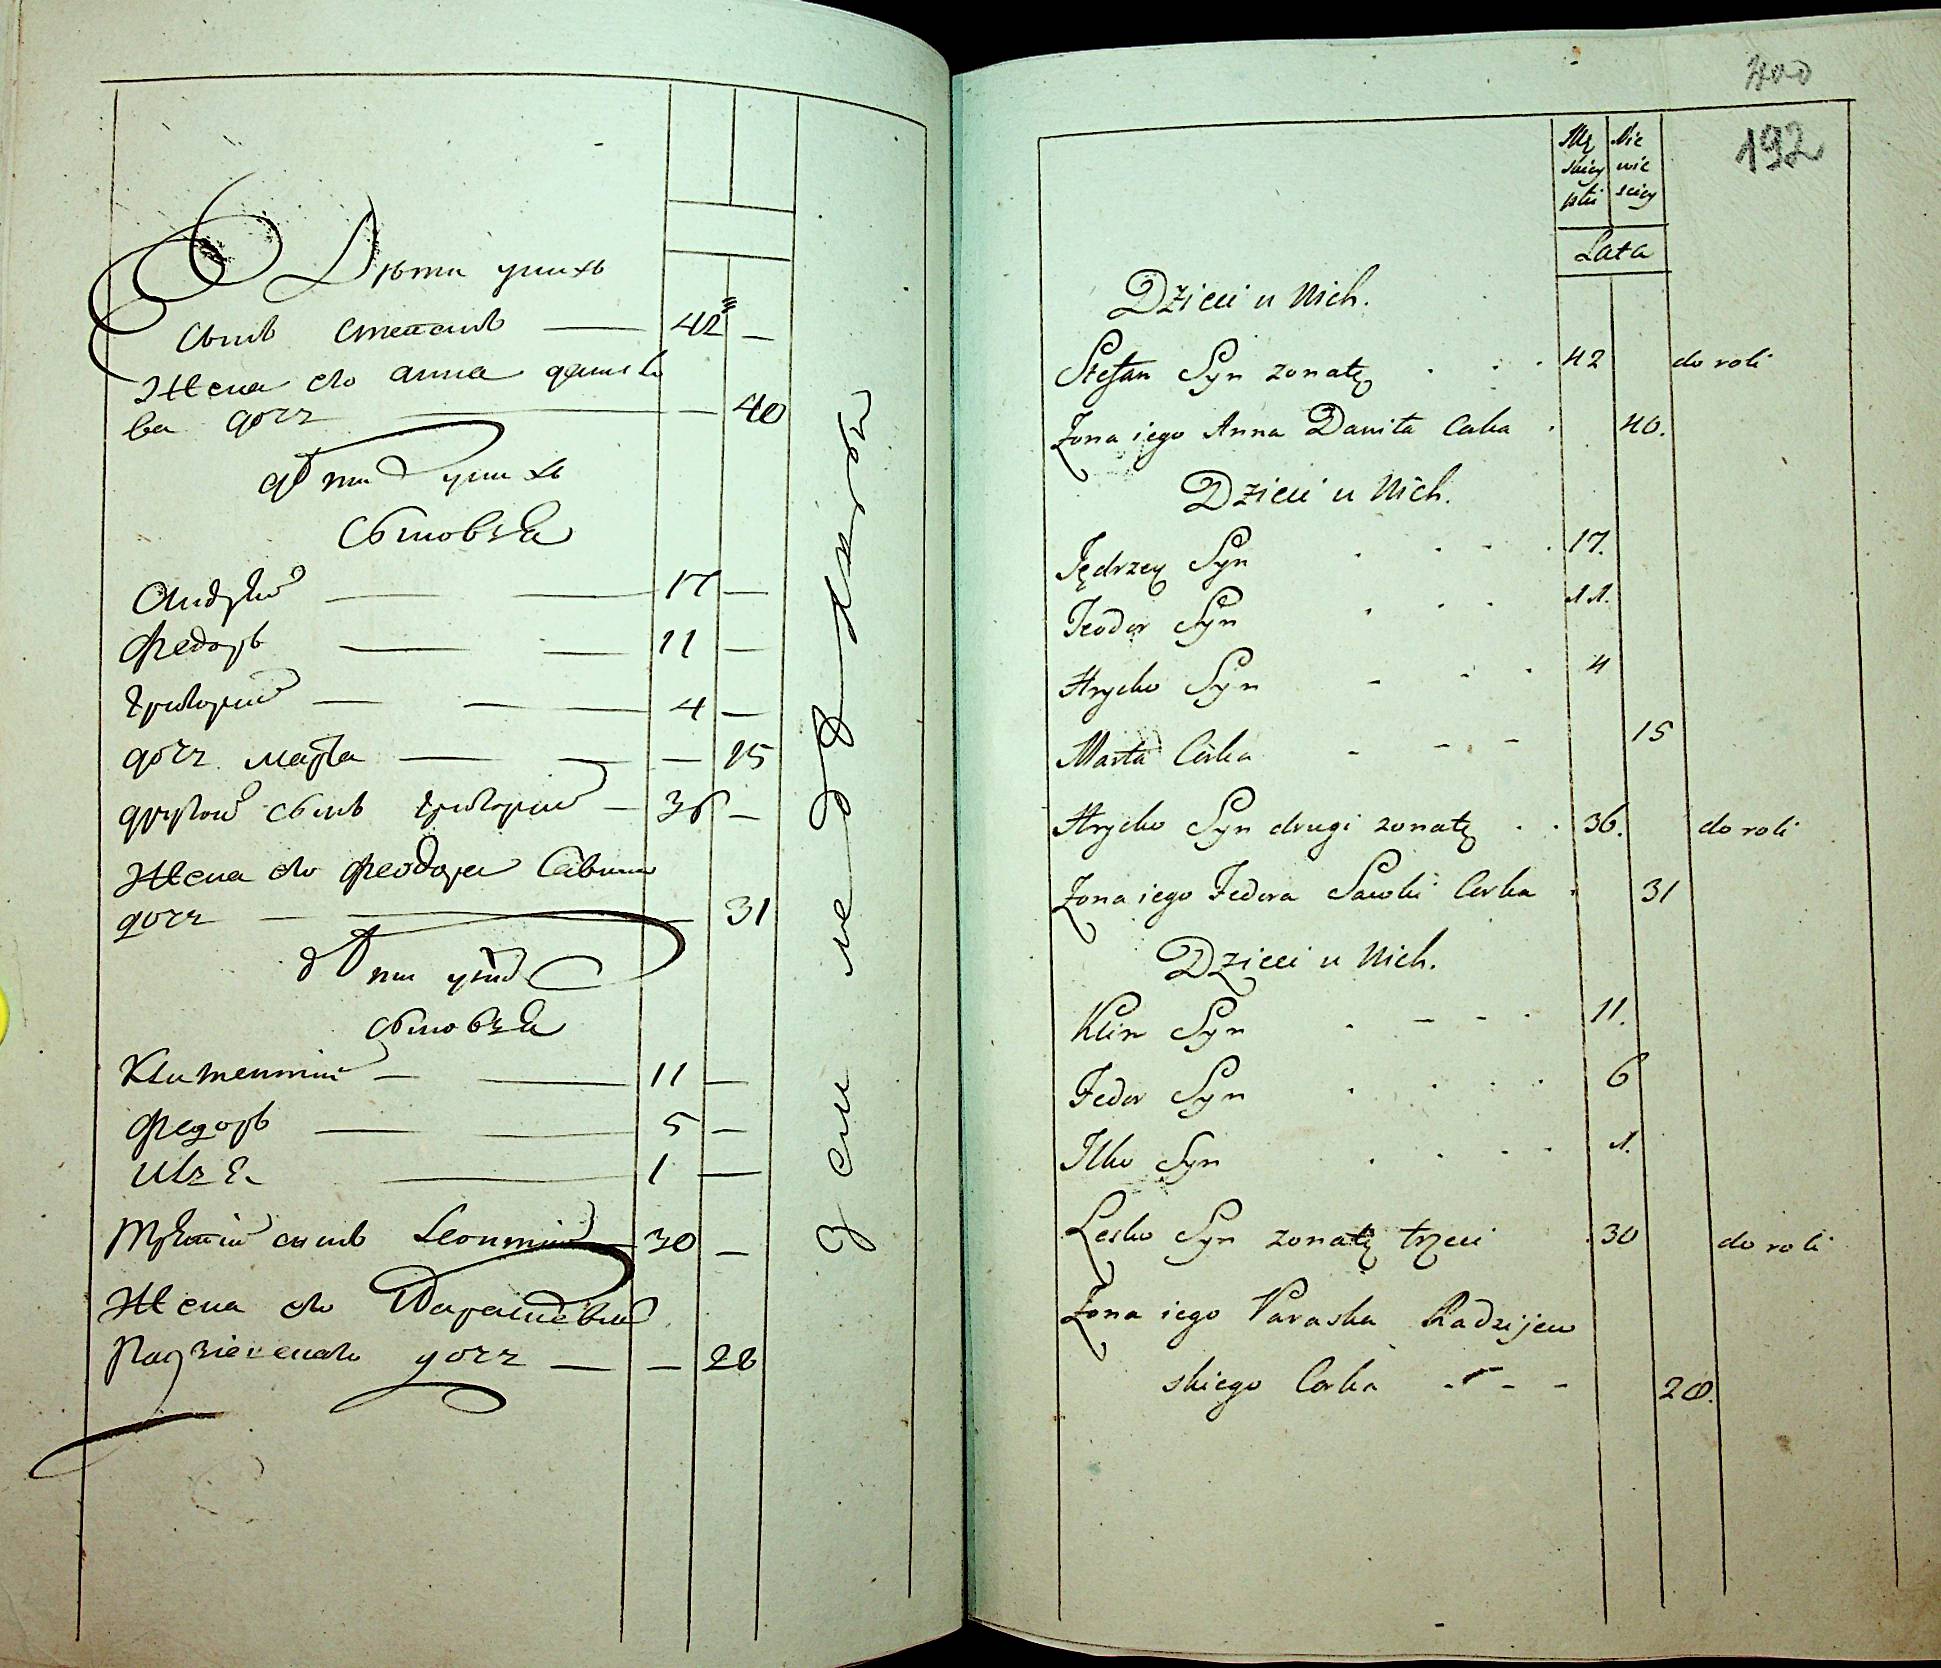 Дѣти у нихъ
Сынъ Степанъ — 42 —
Жена его Анна Данило
ва дочъ — 40
дѣти у нихъ
Сыновья
Андрей — 17 —
Федоръ — 11 —
Григорий — 4 —
дочъ Марѳа — — 15
другой сынъ Григорий — 36 —
Жена его Феодора Савина
дочъ — 31
дѣти у них
сыновья
Климентий — 11 —
Федоръ — 5 —
Илья — 1 —
Третий сынъ Леонтий 30 —
Жена его
дочъ — — 28
400
192
Mę
skiey
płci
Nie
wie
sciey
Lata
Dzieci u Nich.
Stefan Syn zonaty . . . 42 do roli
Zona iego Anna Daniła Corka . 40.
Dzieci u Nich.
Jędrzey Syn . . . . 17.
Teodor Syn . . . 11.
Hryćko Syn - . . 4
Marta Córka - - - 15
Hryćko Syn drugi zonaty . . 36. do roli
Zona iego Fedora Sawki Corka . 31
Dzieci u Nich.
Klim Syn . - . . 11.
Fedor Syn . . . . 6
Ilko Syn . . . . 1.
Lesko Syn zonaty trzeci . 30 do roli
Zona iego Paraska Radzijew
skiego Corka - - - - 28.